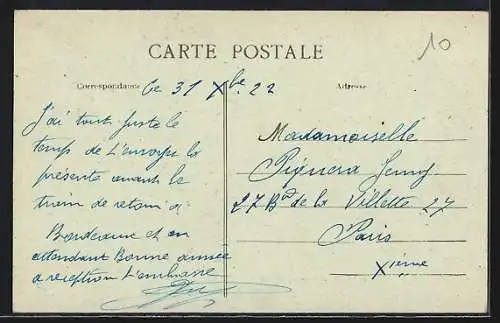 10
CARTE POSTALE
Correspondance
Le 31 Xbre 22
Adresse
J'ai tout juste le
temps de t'envoyer la
présente avant le
train de retour à
Bordeaux et en
attendant Bonne année
a reception t'embrasse
Mademoiselle
Jenny
27 Bd de la Villette 27
Paris
Xième